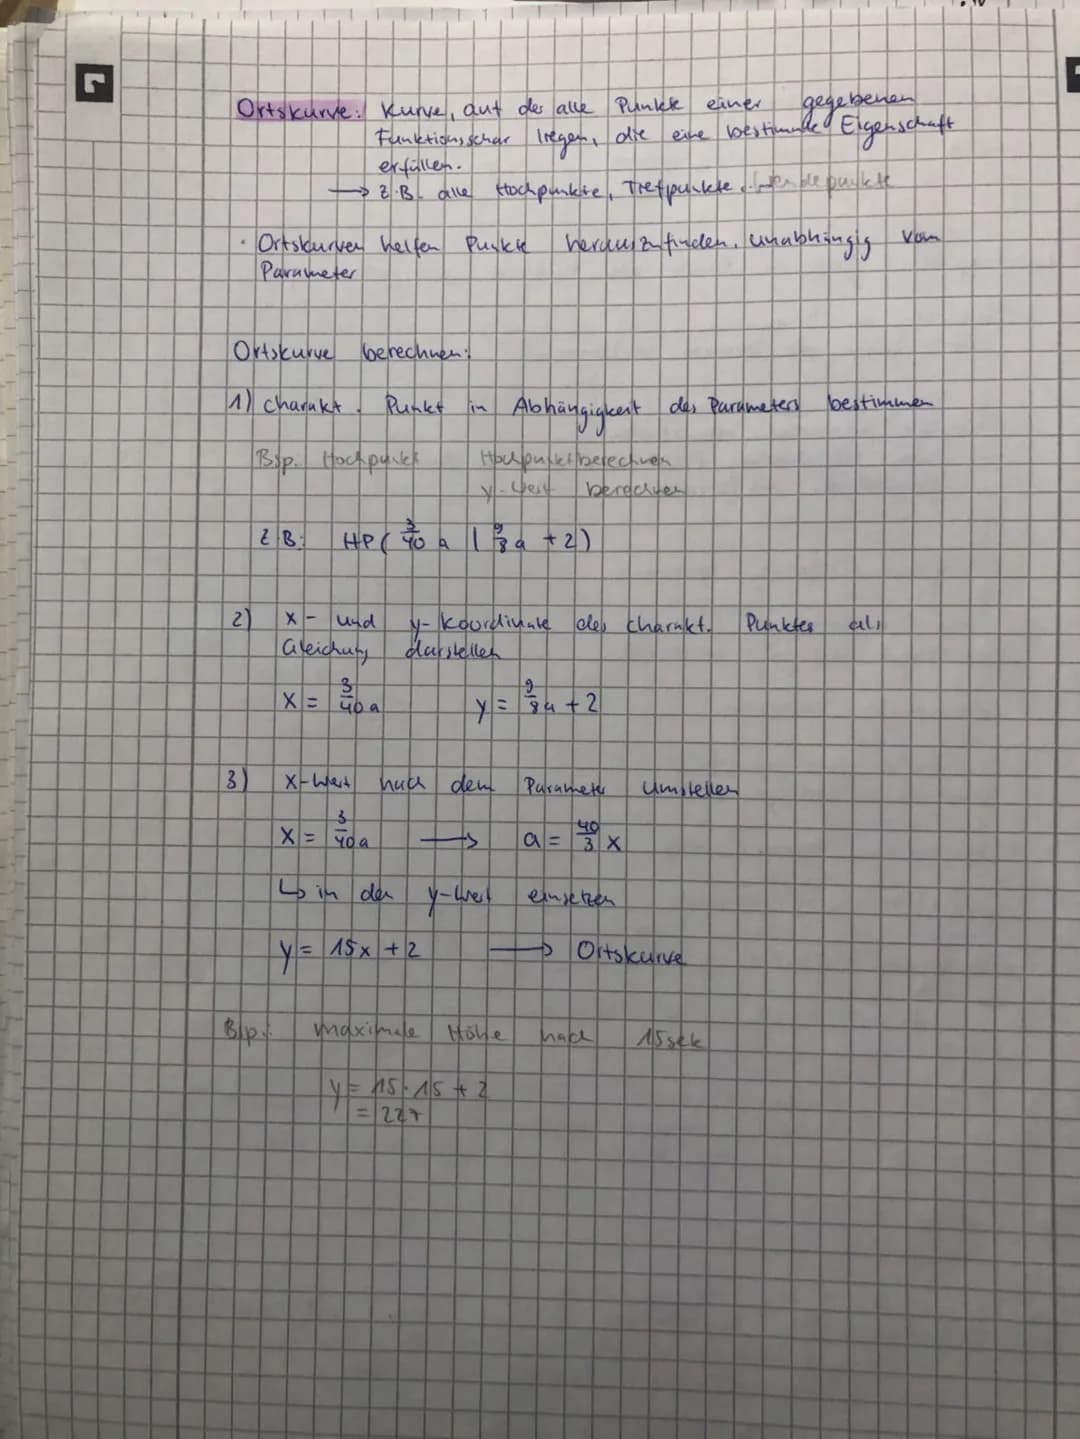 Ortskurve: Kurve, auf der alle Punkte einer gegebenen
Funktionsschar liegen, die eine bestimmte Eigenschaft
erfüllen.
→ z.B. alle Hochpunkte, Tiefpunkte, Wendepunkte
· Ortskurven helfen Punkte herauszufinden, unabhängig vom
Parameter
Ortskurve berechnen:
1) charakt. Punkt in Abhängigkeit des Parameters bestimmen
Bsp. Hochpunkt Hochpunkt berechnen
y-Wert berechnen
z.B: HP( 3/40 a | 9/8 a + 2)
2) x- und y-Koordinate des charakt. Punktes als
Gleichung darstellen
x = 3/40 a y = 9/8 a + 2
3) x-Wert nach dem Parameter umstellen
x = 3/40 a → a = 40/3 x
↳ in den y-Wert einsetzen
y = 15x + 2 → Ortskurve
Bsp.: maximale Höhe nach 15sek
y = 15 · 15 + 2
= 227